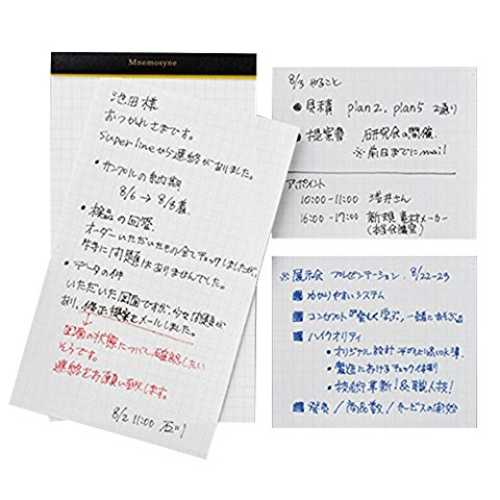 Mnemosyne
池田様
おつかれさまです。
Super lineから連絡がありました。
・サンプルの納期
8/6 → 8/8着
・検品の回答
オーダーいただいたもの全てチェックしましたが、
特に問題はありませんでした。
・データの件
いただいた図面ですが、少々問題が
あり、修正提案をメールしました。
図面の状態について確認したい
そうです。
連絡をお願い致します。
8/2 11:00 石川
8/3 やること
● 見積 plan2. plan5 2通り
● 提案書 研究会の開催
※前日までにmail
アポイント
10:00-11:00 塔井さん
16:00-17:00 新規 素材メーカー
(本社会議室)
※展示会 プレゼンテーション 8/22-23
わかりやすいシステム
コンセプト 学ぶ、一緒に
ハイクオリティ
・オリジナル設計
・製造におけるチェック体制
・技術革新!&職人技!
発売/商品数/サービスの開始